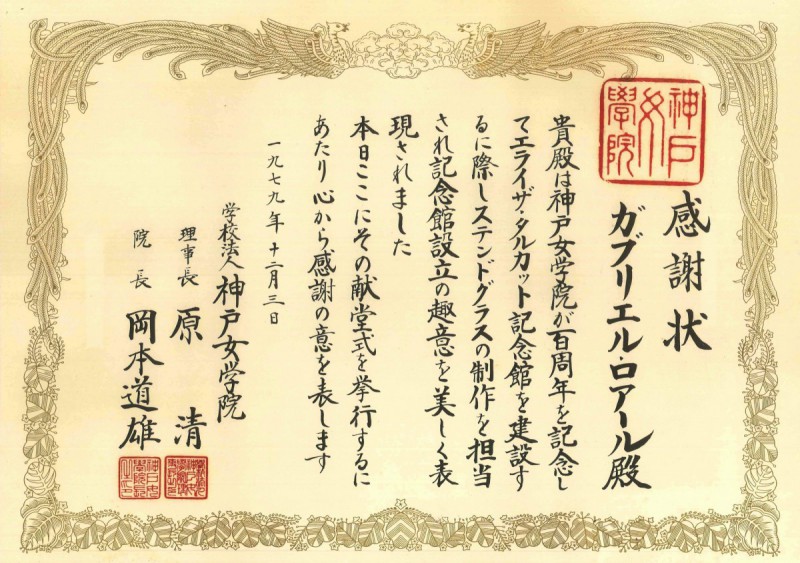 神戸
女
學院
感謝状
ガブリエル・ロアール殿
貴殿は神戸女学院が百周年を記念し
てエライザ・タルカット記念館を建設す
るに際しステンドグラスの制作を担当
され記念館設立の趣意を美しく表
現されました
本日ここにその献堂式を挙行するに
あたり心から感謝の意を表します
一九七九年十二月三日
学校法人 神戸女学院
理事長 原 清
院長 岡本道雄